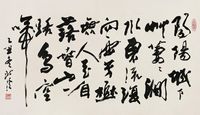 宜陽城下
草萋萋澗
水東流復
向西芳樹
無人花自
落春山一
路鳥空
啼